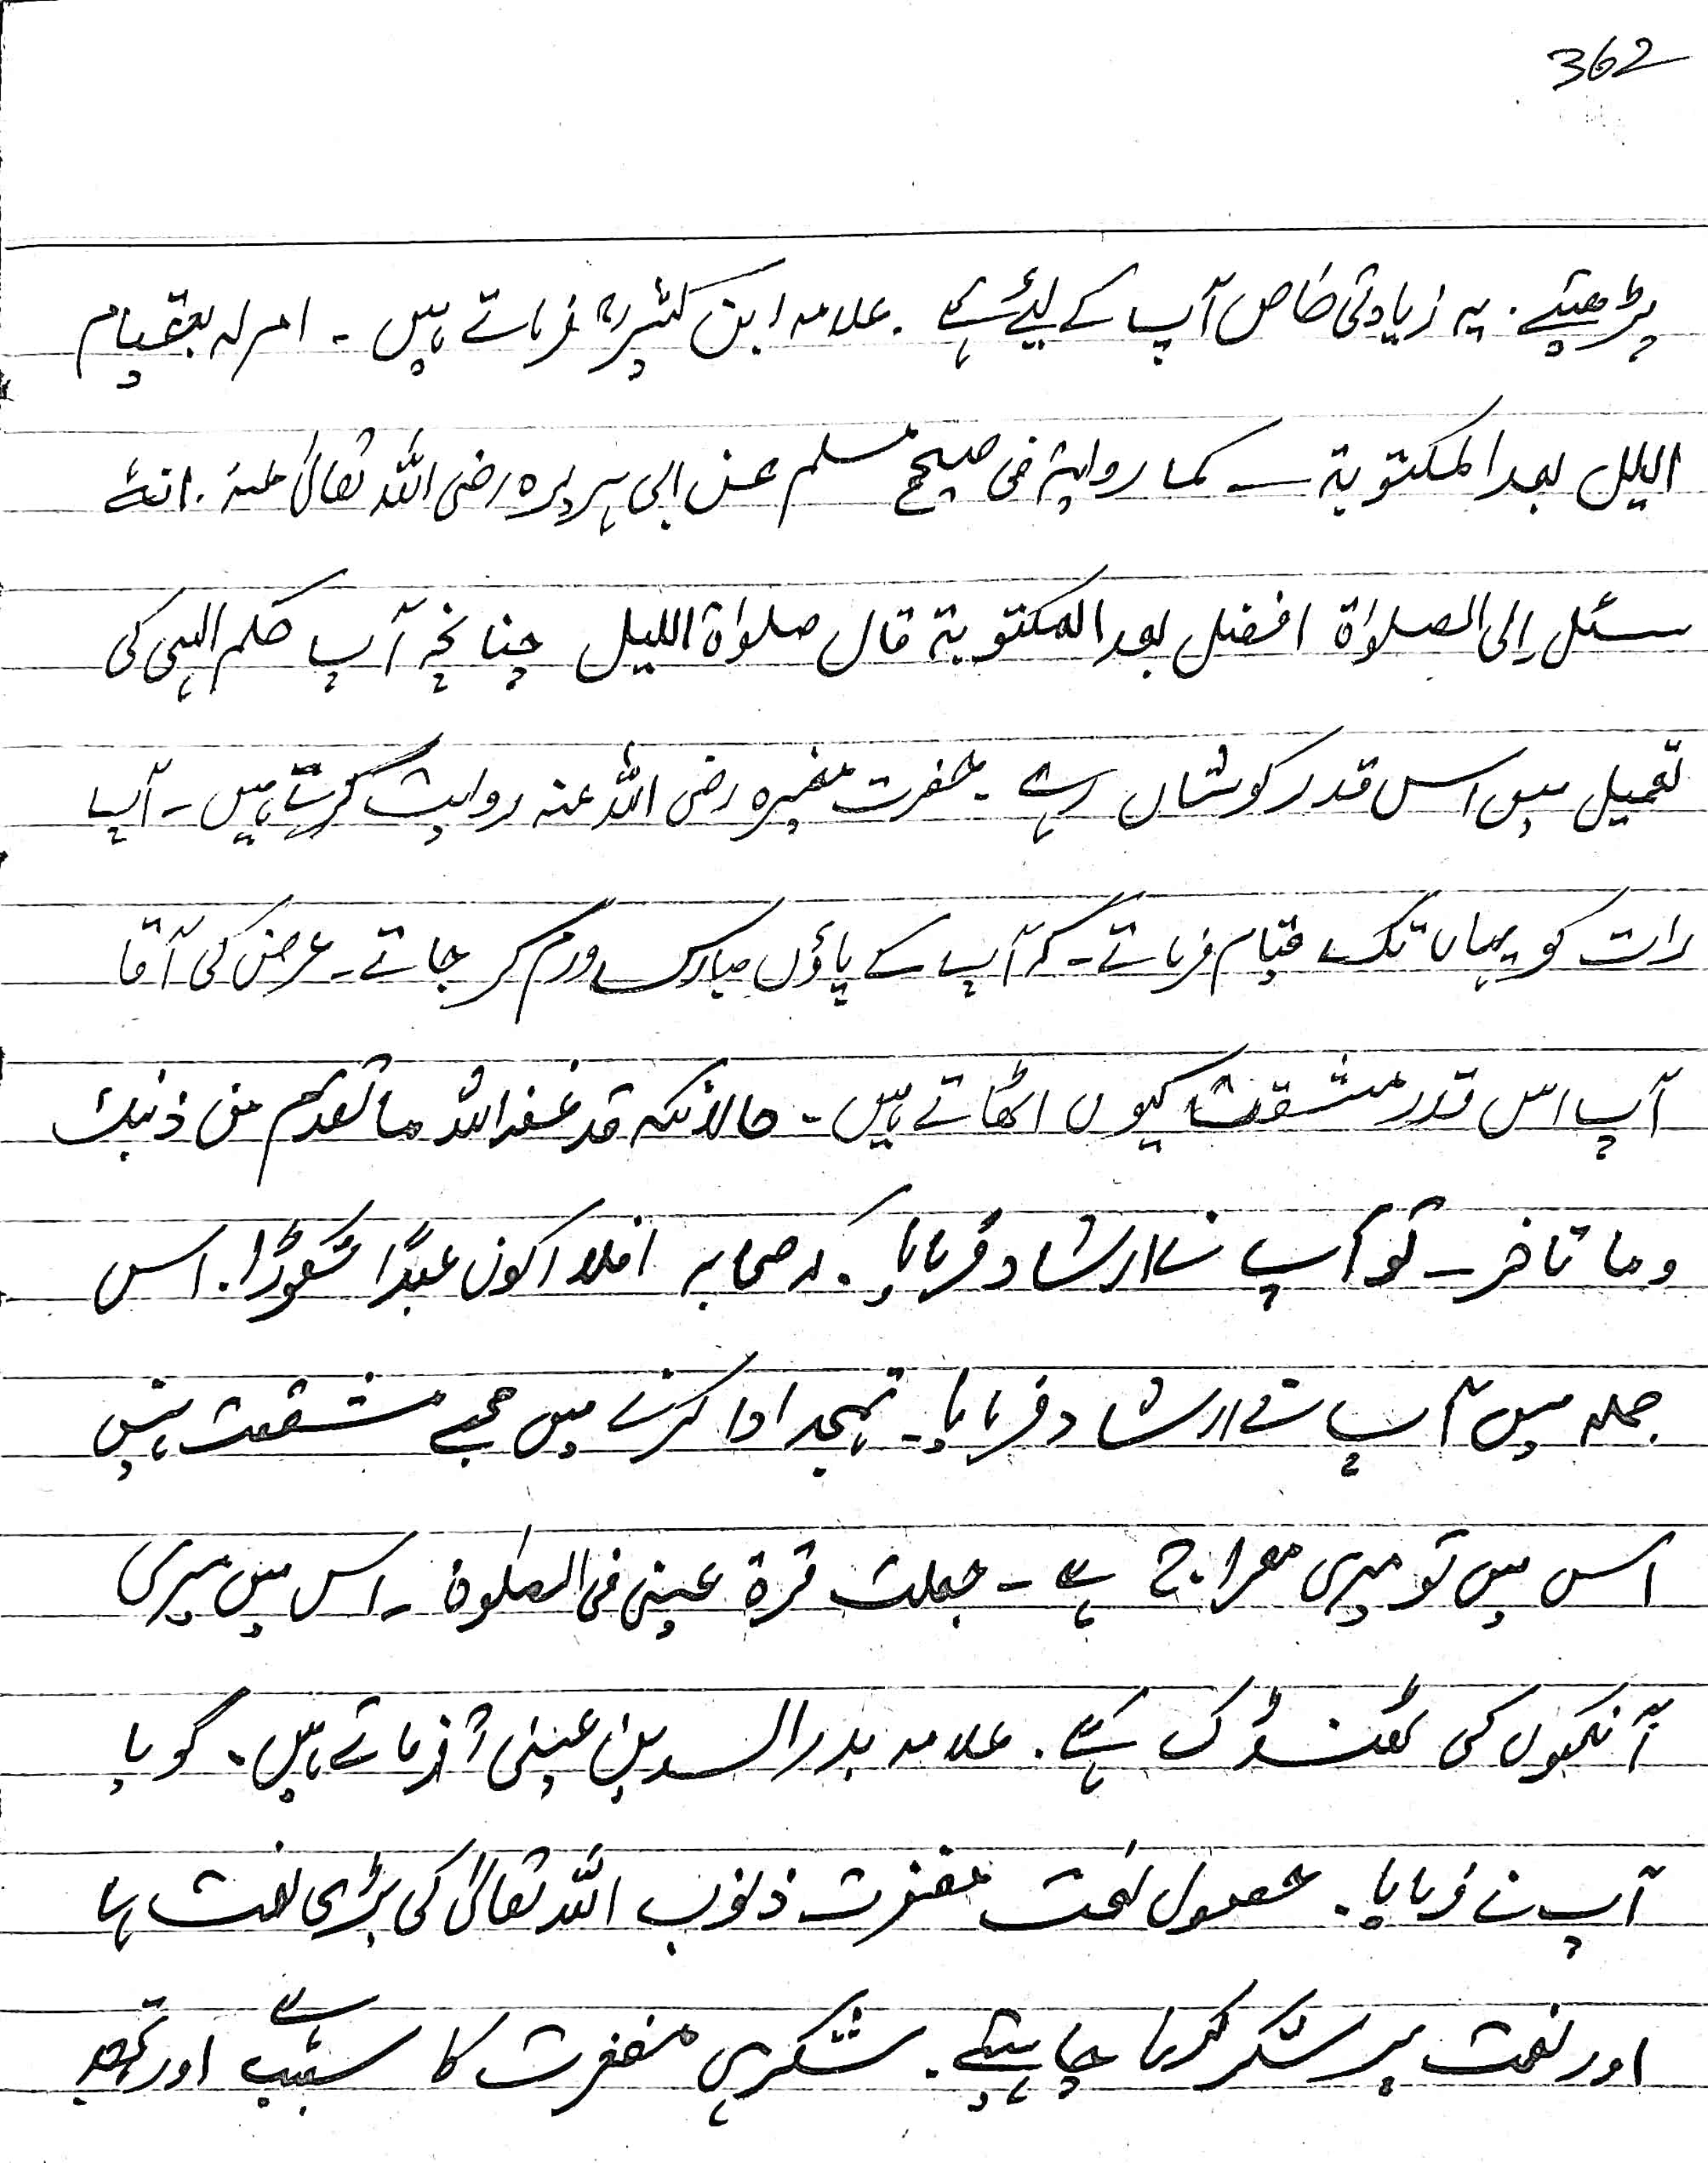 362
پڑھیئے۔ یہ زیادتی خاص آپ کے لیئے ہے۔ علامہ ابن کثیرؒ فرماتے ہیں۔ امر لہ بقیام
الیل بعد المکتوبۃ۔ کما روایۃ فی صیحح مسلم عن ابی ہریرہ رضی اللہ تعالیٰ عنہ۔ انہٗ
سئل اِی الصلواۃ افضل بعد المکتوبۃ قال صلواۃ اللیل چنانچہ آپ حکم الہی کی
تعمیل میں اس قدر کوشاں رہے۔ حضرت مغیرہ رضی اللہ عنہ روایت کرتے ہیں۔ آپ
رات کو یہاں تک قیام فرماتے۔ کہ آپ کے پاؤں مبارک ورم کر جاتے۔ عرض کی آقا
آپ اس قدر مشقت کیوں اٹھاتے ہیں۔ حالانکہ قد غفر اللہ ما تقدم من ذنبک
وما تاخر۔ تو آپ نے ارشاد فرمایا۔ کہ صحابہ افلا اکون عبدًا شکورًا۔ اس
جملہ میں آپ نے ارشاد فرمایا۔ تہجد ادا کرنے میں مجھے مشقت نہیں
اس میں تو میری معراج ہے۔ جعلت قرۃ عینی فی الصلوۃ۔ اس میں میری
آنکھوں کی ٹھنڈک ہے۔ علامہ بدر الدین عینیؒ فرماتے ہیں۔ گویا
آپ نے فرمایا۔ حصول نعمت مغفرت ذنوب اللہ تعالیٰ کی بڑی نعمت ہے
اور نعمت پر شکر کرنا چاہیئے۔ شکر ہی مغفرت کا سبب ہے اور تہجد